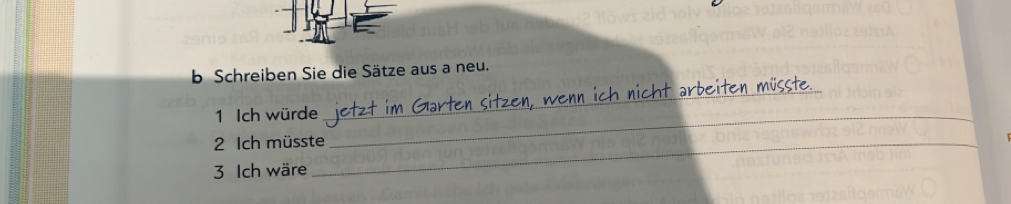 b Schreiben Sie die Sätze aus a neu.
1 Ich würde jetzt im Garten sitzen, wenn ich nicht arbeiten müsste.
2 Ich müsste
3 Ich wäre